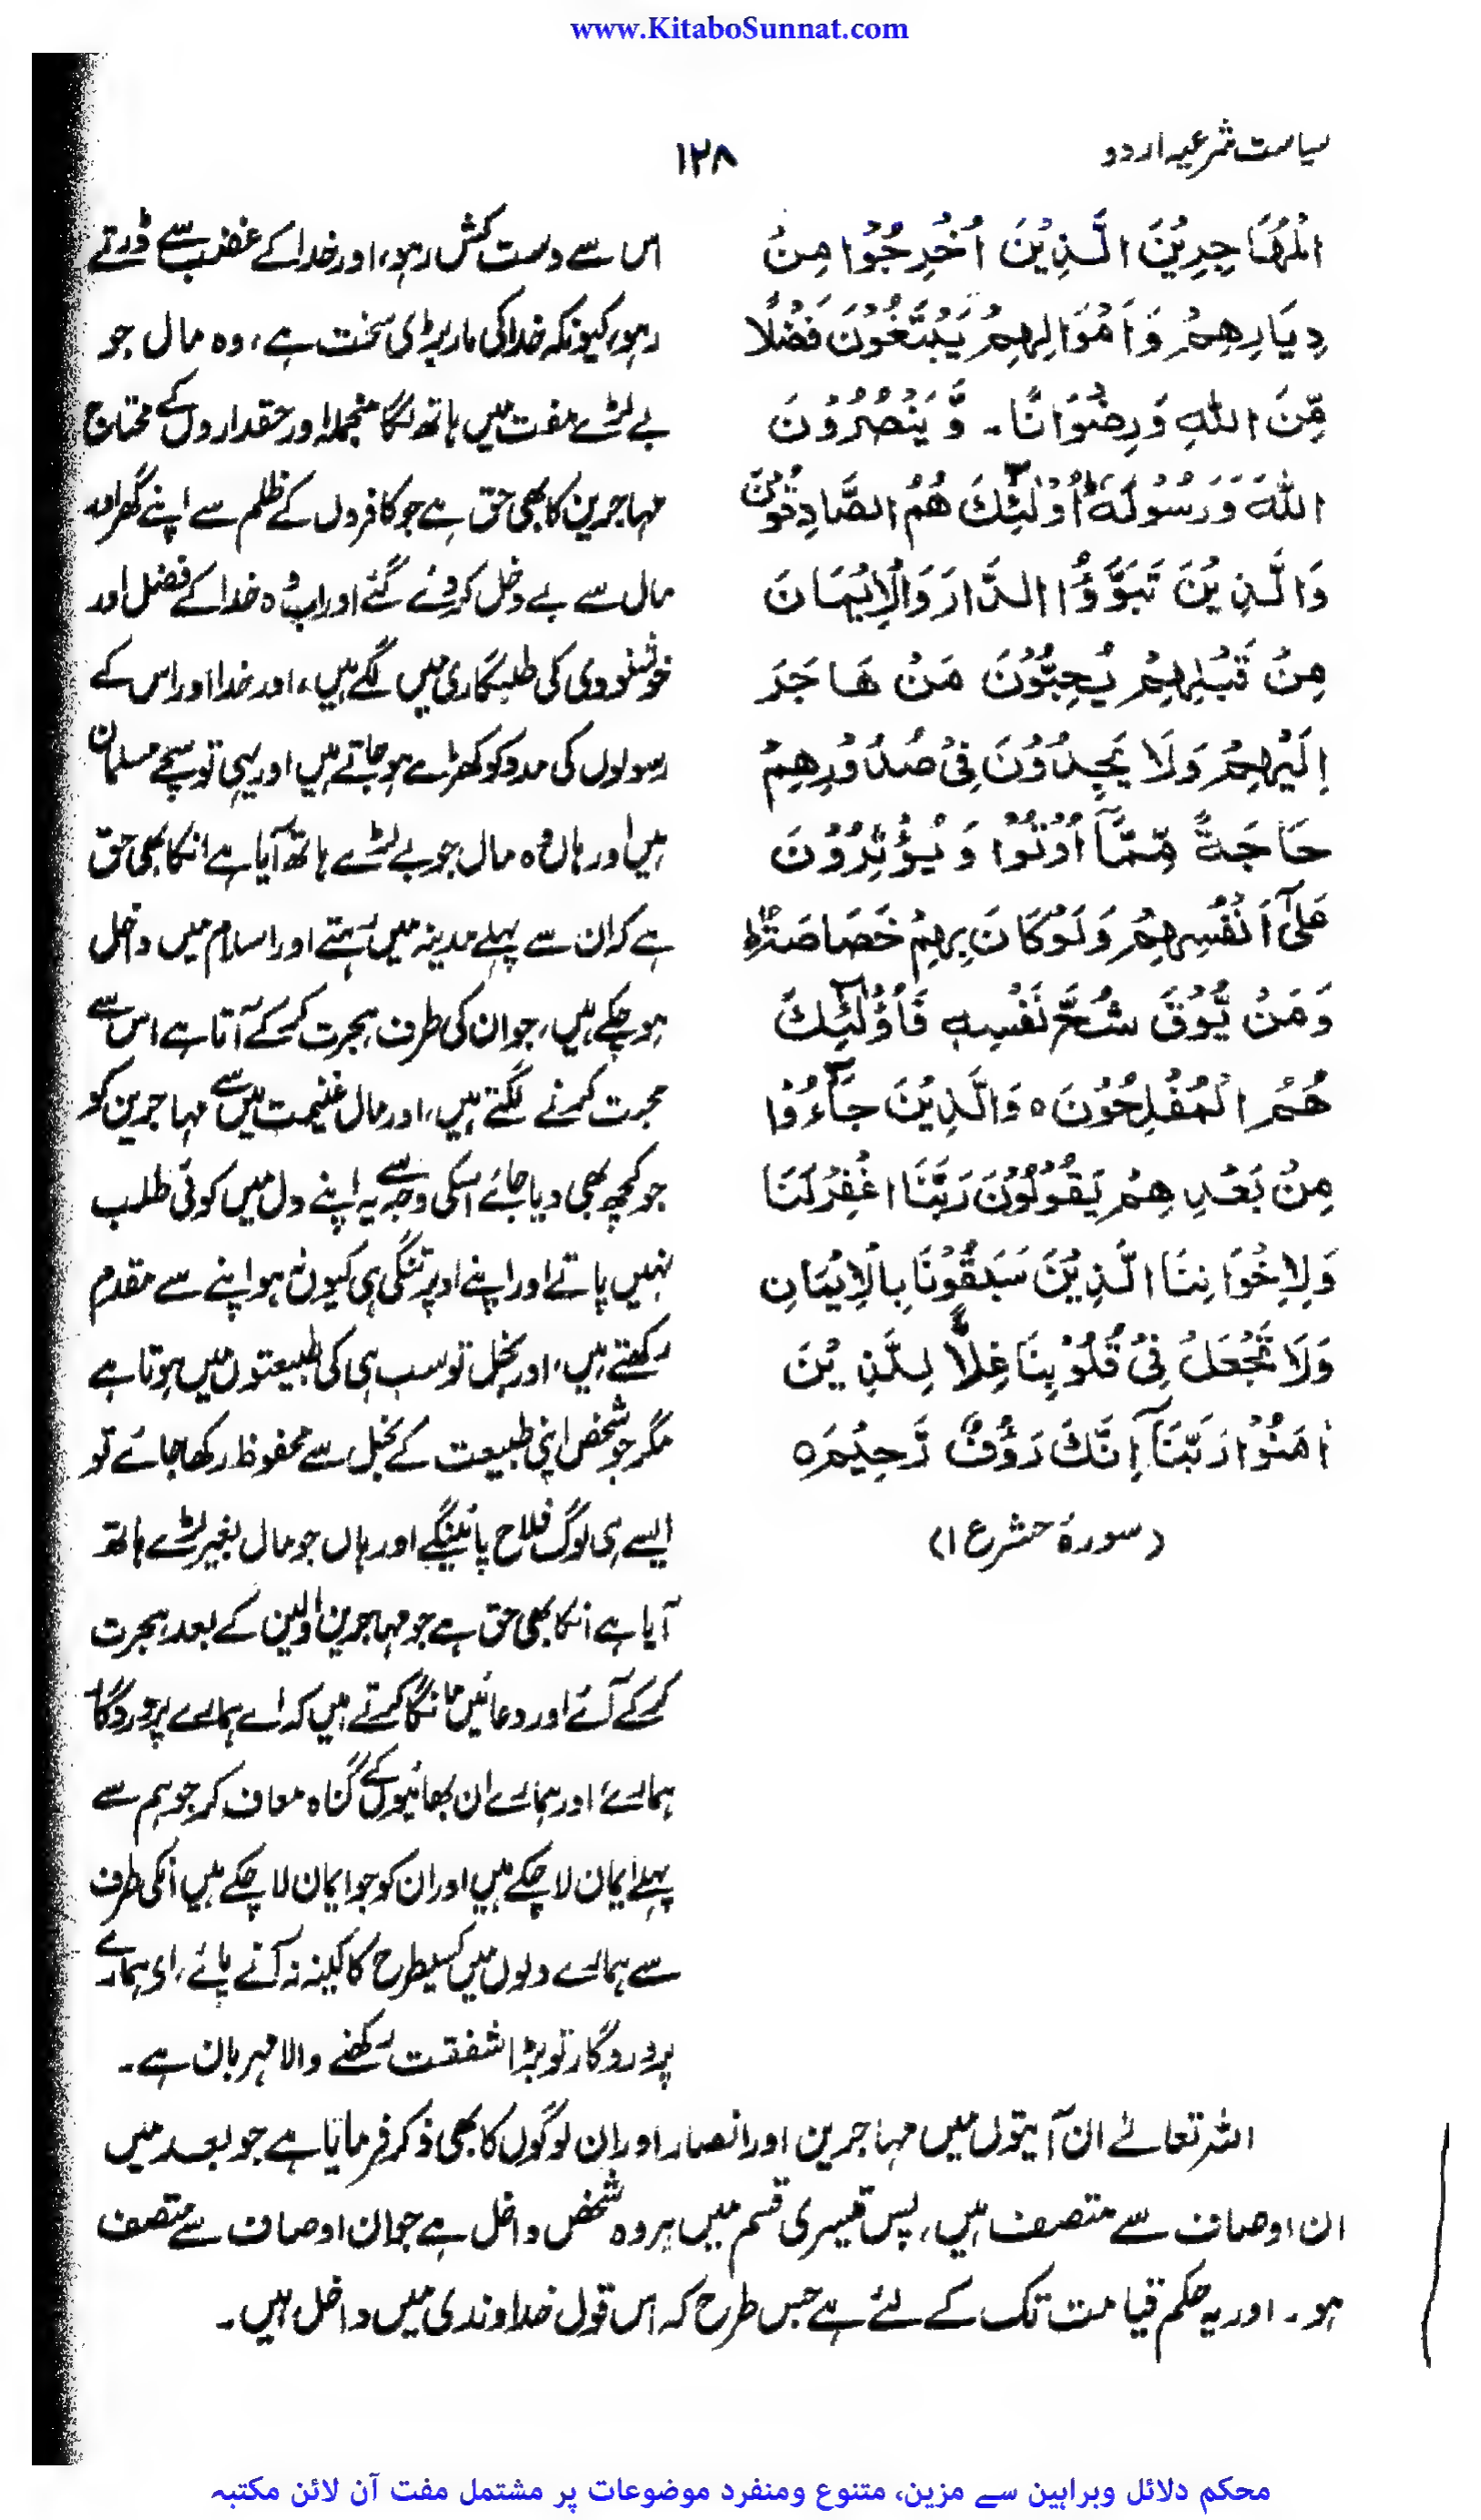 www.KitaboSunnat.com
سیاست شرعیہ اردو
۱۲۸
الْمُهَاجِرِيْنَ الَّذِيْنَ اُخْرِجُوْا مِنْ
دِيَارِهِمْ وَاَمْوَالِهِمْ يَبْتَغُوْنَ فَضْلًا
مِّنَ اللّٰهِ وَرِضْوَانًا۔ وَّيَنْصُرُوْنَ
اللّٰهَ وَرَسُوْلَهٗ ؕ اُوْلٰٓئِكَ هُمُ الصَّادِقُوْنَ
وَالَّذِيْنَ تَبَوَّؤُا الدَّارَ وَالْاِيْمَانَ
مِنْ قَبْلِهِمْ يُحِبُّوْنَ مَنْ هَاجَرَ
اِلَيْهِمْ وَلَا يَجِدُوْنَ فِىْ صُدُوْرِهِمْ
حَاجَةً مِّمَّآ اُوْتُوْا وَيُؤْثِرُوْنَ
عَلٰٓى اَنْفُسِهِمْ وَلَوْ كَانَ بِهِمْ خَصَاصَةٌ ؕ
وَمَنْ يُّوْقَ شُحَّ نَفْسِهٖ فَاُوْلٰٓئِكَ
هُمُ الْمُفْلِحُوْنَ ہ وَالَّذِيْنَ جَآءُوْا
مِنْ بَعْدِ هِمْ يَقُوْلُوْنَ رَبَّنَا اغْفِرْلَنَا
وَلِاِخْوَانِنَا الَّذِيْنَ سَبَقُوْنَا بِالْاِيْمَانِ
وَلَا تَجْعَلْ فِىْ قُلُوْبِنَا غِلًّا لِلَّذِيْنَ
اٰمَنُوْا رَبَّنَآ اِنَّكَ رَؤُفٌ رَّحِيْمٌ ہ
(سورۂ حشر ع ۱)
اس سے دست کش رہو، اور خدا کے غضب سے ڈرتے
رہو، کیونکہ خدا کی مار بڑی سخت ہے، وہ مال جو
بے لڑے مفت میں ہاتھ لگا منجملہ اور حقداروں کے محتاج
مہاجرین کا بھی حق ہے جو کافروں کے ظلم سے اپنے گھر اور
مال سے بے دخل کر دئے گئے اور اب وہ خدا کے فضل اور
خوشنودی کی طلبگاری میں لگے ہیں، اور خدا اور اس کے
رسولوں کی مدد کو کھڑے ہو جاتے ہیں اور یہی تو سچے مسلمان
ہیں اور ہاں وہ مال جو بے لڑے ہاتھ آیا ہے انکا بھی حق
ہے کہ ان سے پہلے مدینہ میں رہتے اور اسلام میں داخل
ہو چکے ہیں، جو ان کی طرف ہجرت کر کے آتا ہے اس سے
محبت کرنے لگتے ہیں، اور مال غنیمت میں سے مہاجرین کو
جو کچھ بھی دیا جائے اسکی وجہ سے یہ اپنے دل میں کوئی طلب
نہیں پاتے اور اپنے اوپر تنگی ہی کیوں نہ ہو اپنے سے مقدم
رکھتے ہیں، اور بخل تو سب ہی کی طبیعتوں میں ہوتا ہے
مگر جو شخص اپنی طبیعت کے بخل سے محفوظ رکھا جائے تو
ایسے ہی لوگ فلاح پائینگے اور ہاں جو مال بغیر لڑے ہاتھ
آیا ہے انکا بھی حق ہے جو مہاجرین اولین کے بعد ہجرت
کر کے آئے اور دعائیں مانگا کرتے ہیں کہ اے ہمارے پروردگار
ہمارے اور ہمارے ان بھائیوں کے گناہ معاف کر جو ہم سے
پہلے ایمان لا چکے ہیں اور ان کو جو ایمان لا چکے ہیں انکی طرف
سے ہمارے دلوں میں کسیطرح کا کینہ نہ آنے پائے، ای ہمارے
پروردگار تو بڑا شفقت رکھنے والا مہربان ہے۔
اللہ تعالےٰ ان آیتوں میں مہاجرین اور انصار اور ان لوگوں کا بھی ذکر فرمایا ہے جو بعد میں
ان اوصاف سے متصف ہیں، پس تیسری قسم میں ہر وہ شخص داخل ہے جو ان اوصاف سے متصف
ہو۔ اور یہ حکم قیامت تک کے لئے ہے جس طرح کہ اس قول خداوندی میں داخل ہیں۔
محکم دلائل وبراہین سے مزین، متنوع ومنفرد موضوعات پر مشتمل مفت آن لائن مکتبہ